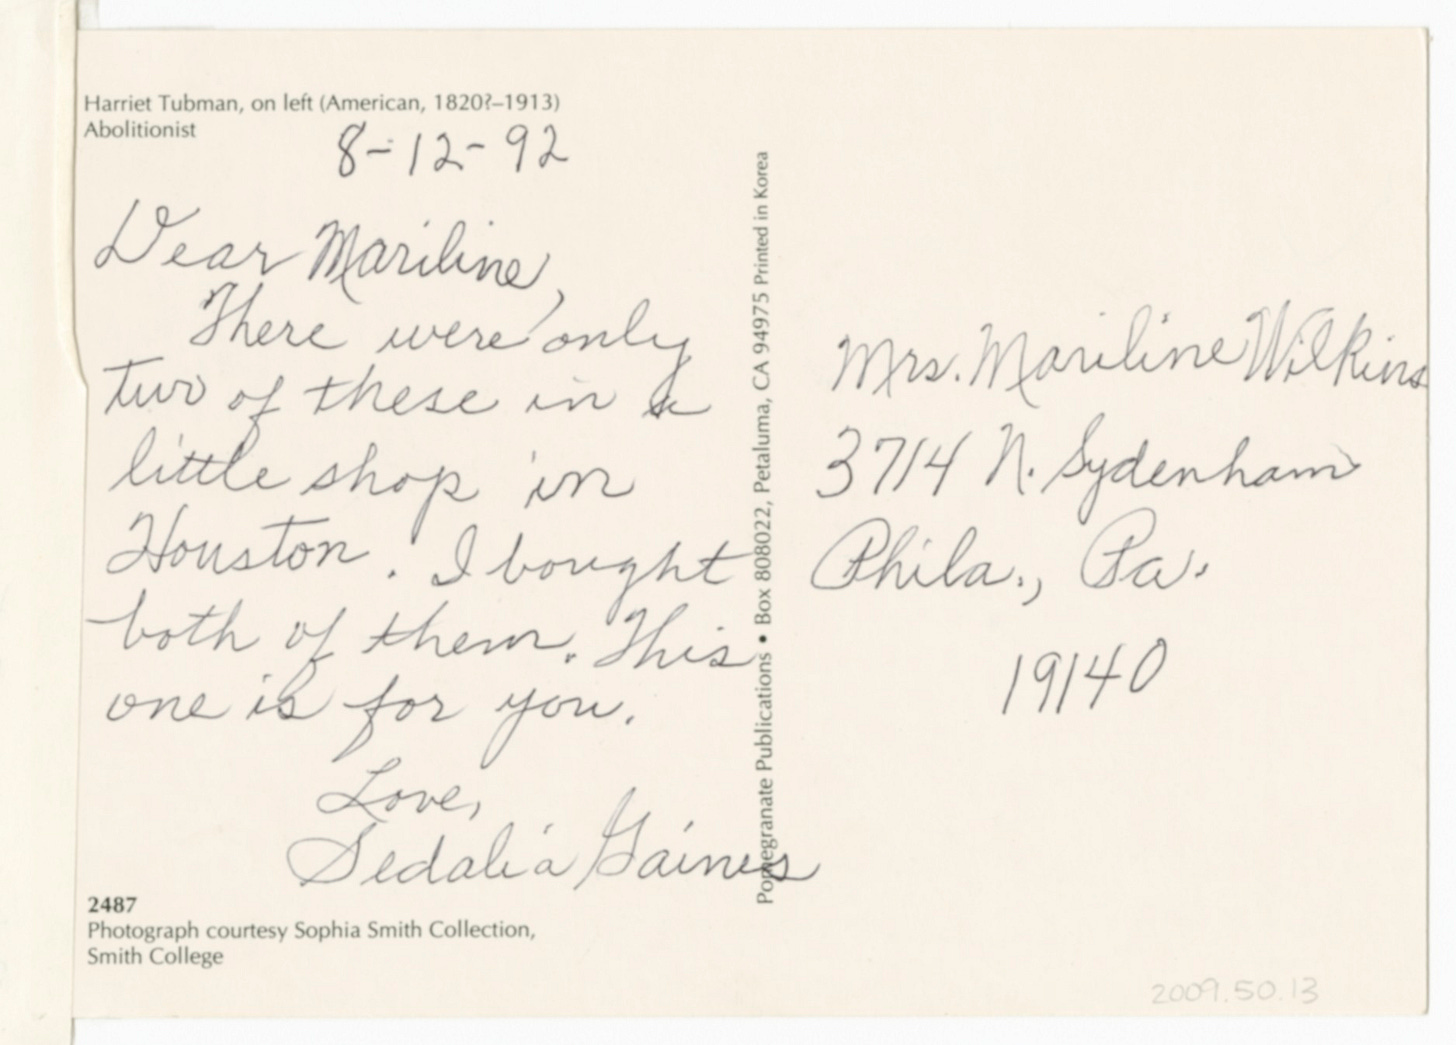 Harriet Tubman, on left (American, 1820?–1913)
Abolitionist
8-12-92
Dear Mariline,
There were only
two of these in a
little shop in
Houston. I bought
both of them. This
one is for you.
Love,
Sedalia Gaines
2487
Photograph courtesy Sophia Smith Collection,
Smith College
Pomegranate Publications • Box 808022, Petaluma, CA 94975 Printed in Korea
Mrs. Mariline Wilkins
3714 N. Sydenham
Phila., Pa.
19140
2009.50.13